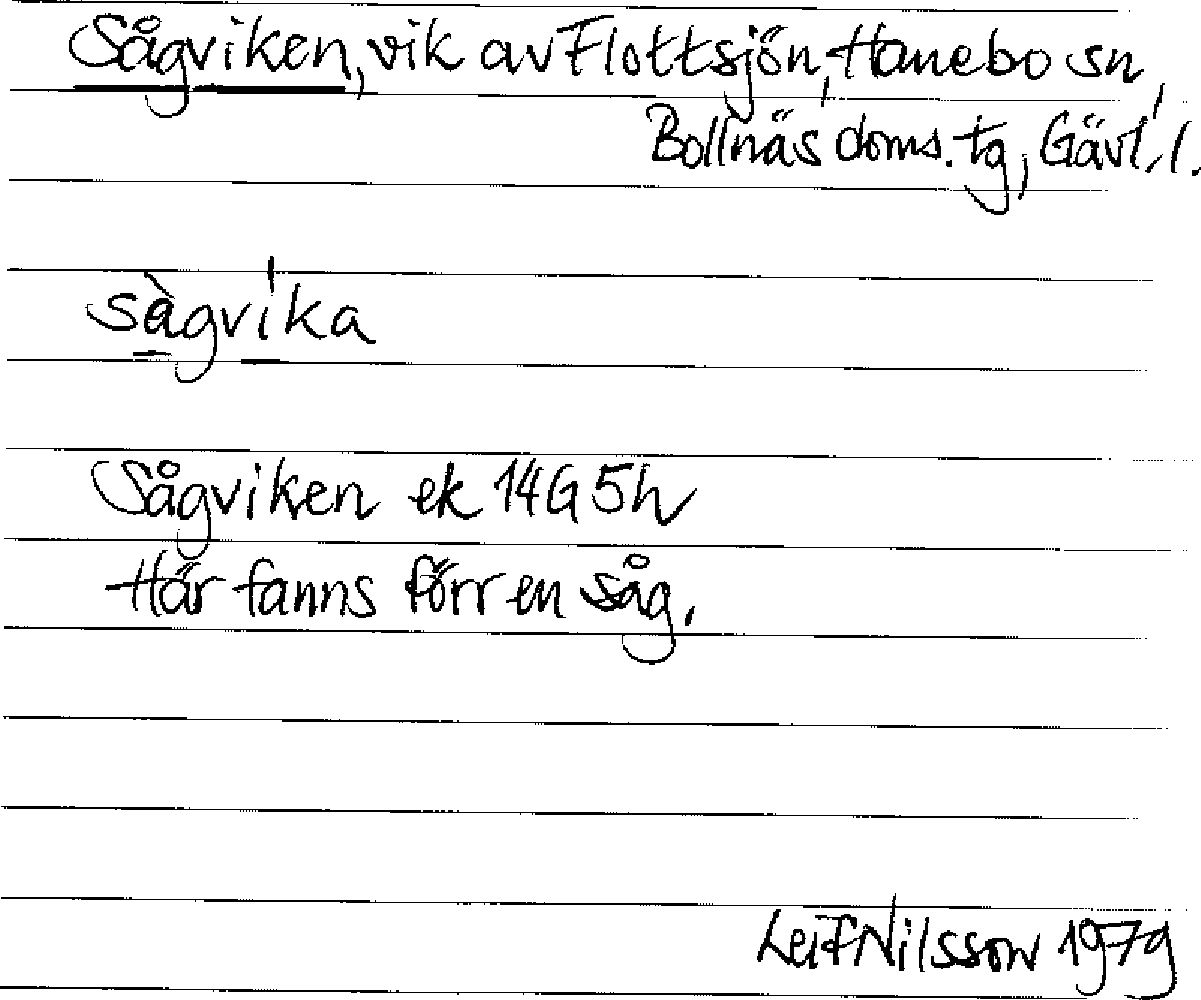 Sågviken, vik av Flottsjön, Hanebo sn,
Bollnäs doms. tg, Gävl. l.
sàgvíka
Sågviken ek 14G 5h
Här fanns förr en såg.
Leif Nilsson 1979